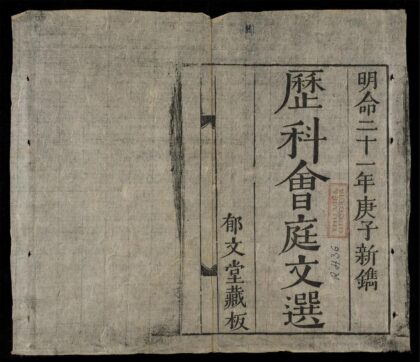 明命二十一年庚子新鐫
歷科會庭文選
郁文堂藏板